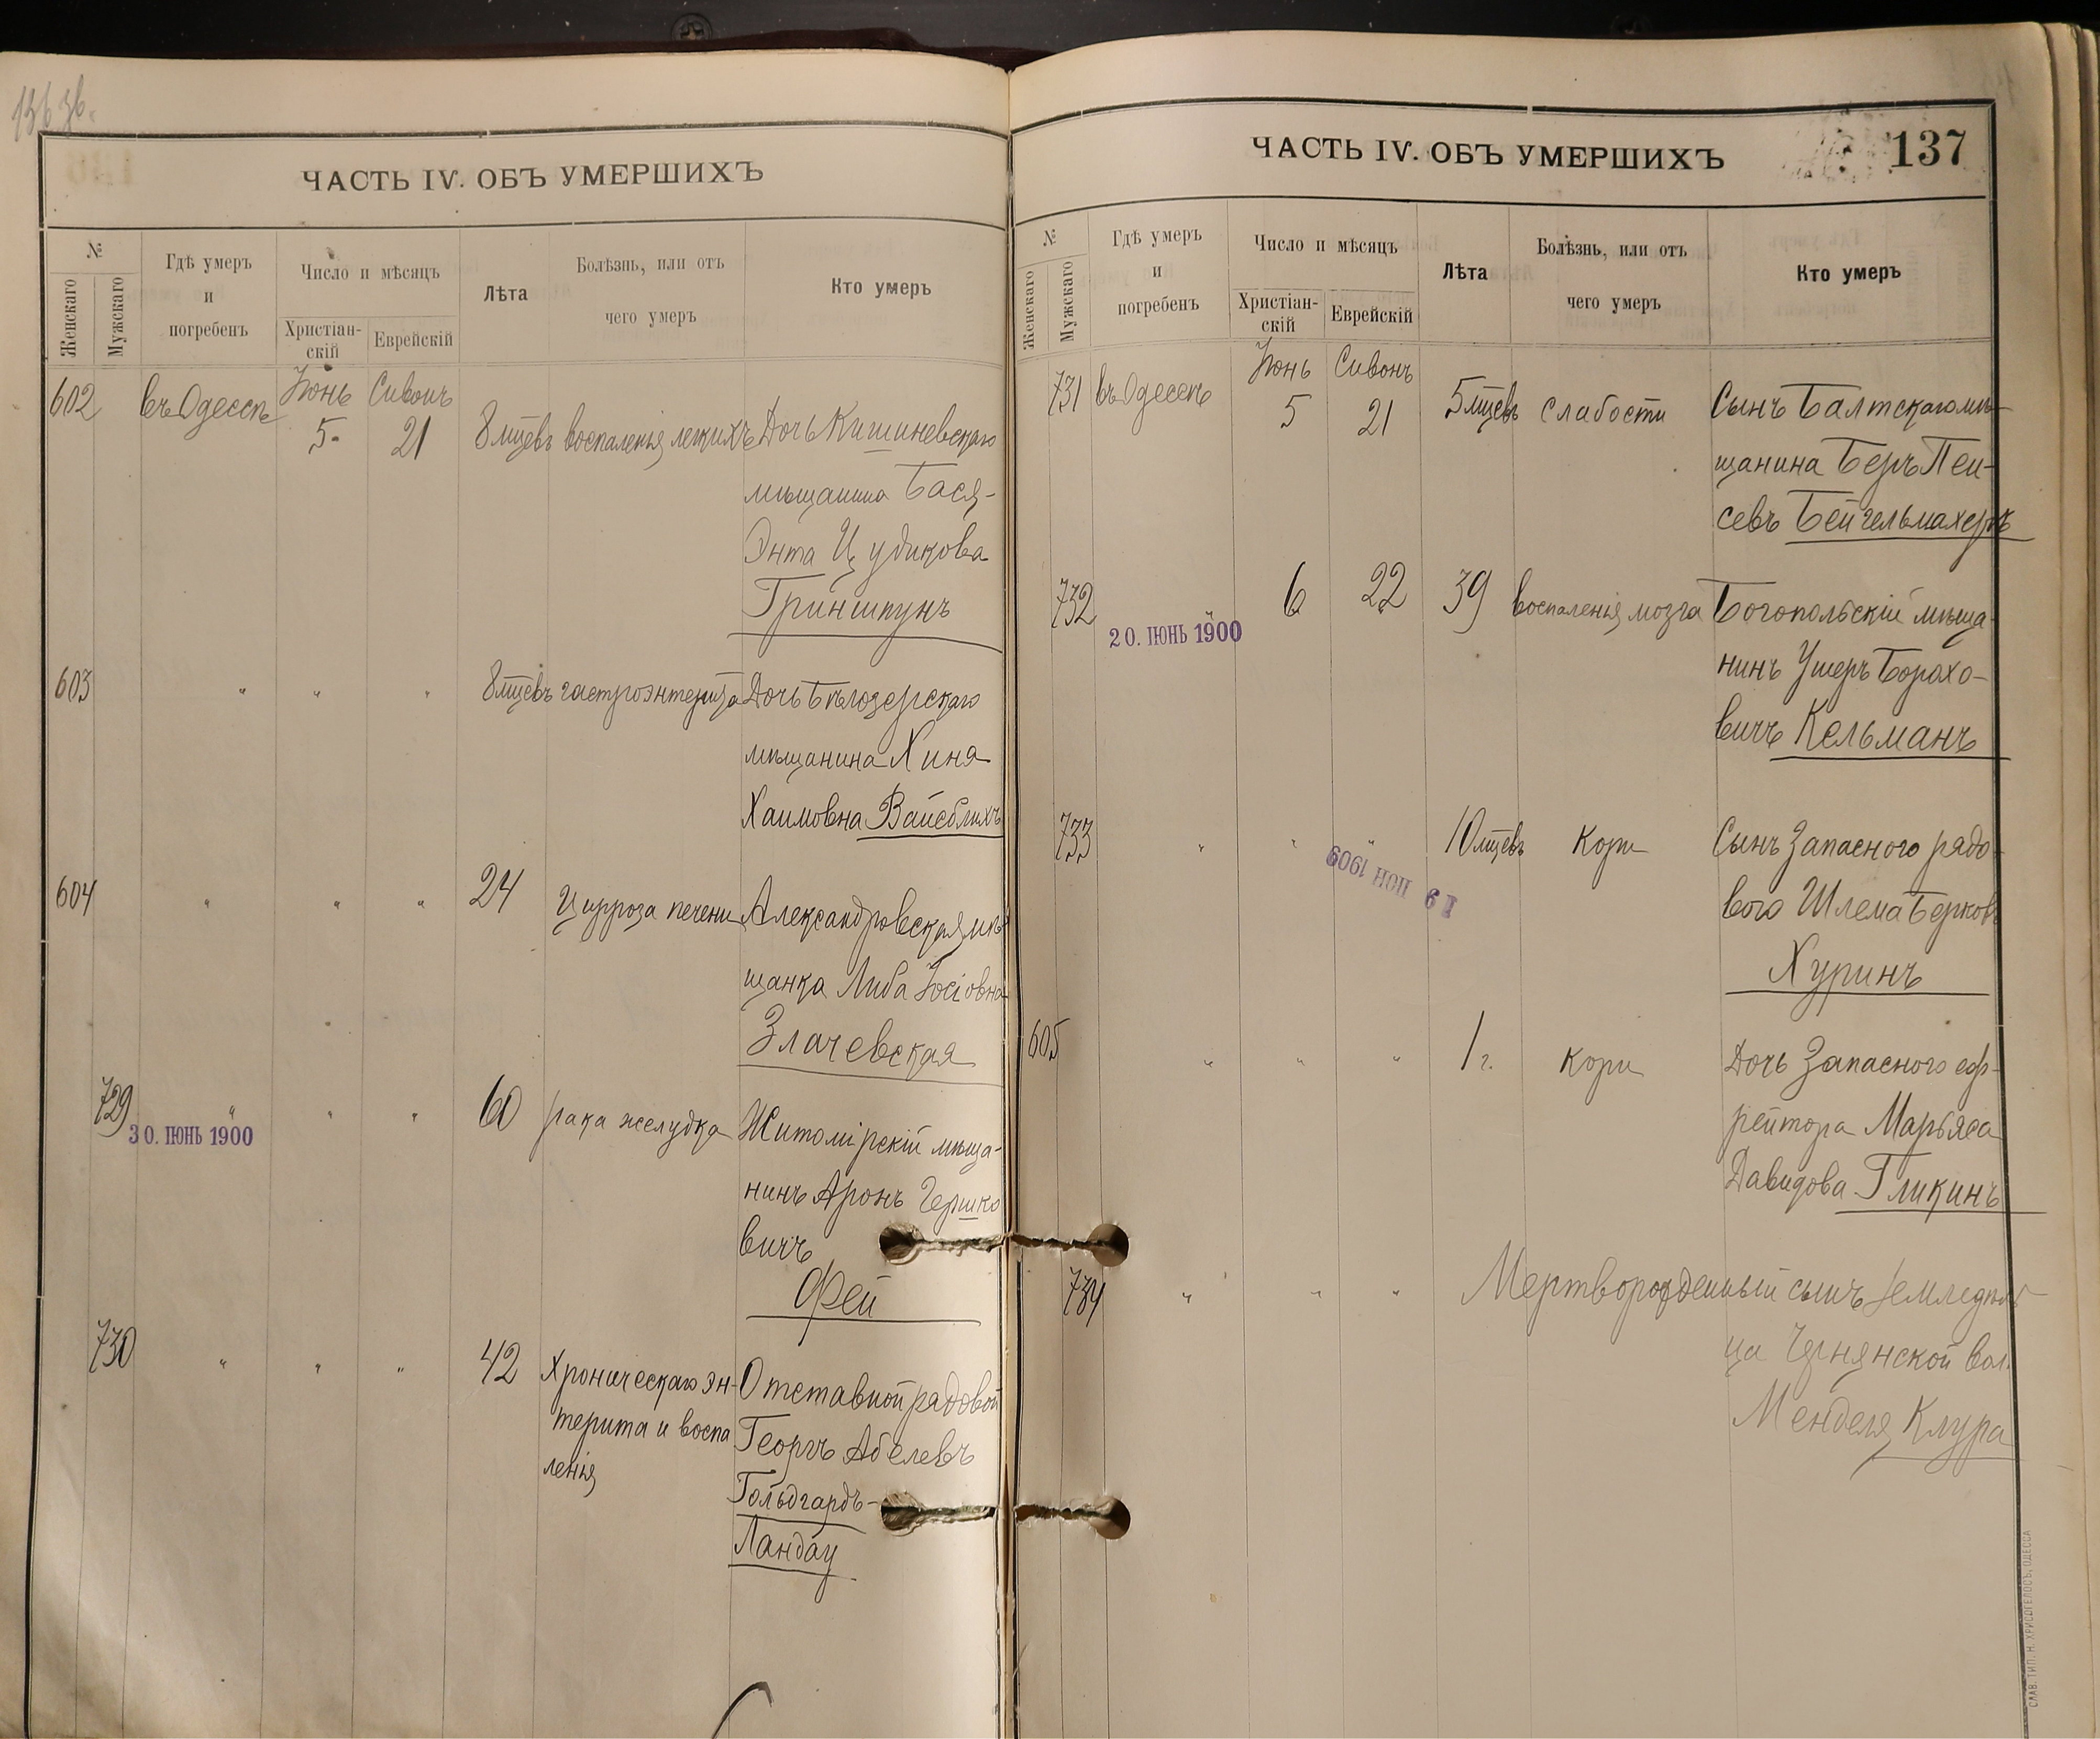 136 зв.
ЧАСТЬ IV. ОБЪ УМЕРШИХЪ
№
Женскаго
Мужскаго
Гдѣ умеръ
и
погребенъ
Число и мѣсяцъ
Христіан-
скій
Еврейскій
Лѣта
Болѣзнь, или отъ
чего умеръ
Кто умеръ
602 въ Одессѣ Іюнь 5 Сивонъ 21 8 мцевъ воспаленія легкихъ Дочь Кишиневскаго
мѣщанина Бася-
Энта Цудикова
Гриншпунъ
603 " " " 8 мцевъ гастроэнтерита Дочь Бѣлозерскаго
мѣщанина Хиня
Хаимовна Вайсблихъ
604 " " " 24 Цирроза печени Александровская мѣ
щанка Либа Іосіовна
Злачевская
729 " " " 60 рака желудка Житомірскій мѣща-
30. ІЮНЬ 1900
нинъ Аронъ Гершко
вичъ
Фей
730 " " " 42 Хроническаго эн- Отставной рядовой
терита и воспа Георгъ Абелевъ
ленія Гольдгардъ-
Ландау
ЧАСТЬ IV. ОБЪ УМЕРШИХЪ
137
№
Женскаго
Мужскаго
Гдѣ умеръ
и
погребенъ
Число и мѣсяцъ
Христіан-
скій
Еврейскій
Лѣта
Болѣзнь, или отъ
чего умеръ
Кто умеръ
731 въ Одессѣ Іюнь 5 Сивонъ 21 5 мцевъ слабости Сынъ Балтскаго мѣ-
щанина Беръ Пей-
севъ Бейгельмахеръ
732 " 6 22 39 воспаленія мозга Богопольскій мѣща-
20. ІЮНЬ 1900
нинъ Ушеръ Борохо-
вичъ Кельманъ
733 " " " 10 мцевъ Кори Сынъ Запасного рядо-
19 ІЮН 1909
вого Шлема Берковъ
Хуринъ
605 " " " 1 г. Кори Дочь Запасного еф-
рейтора Марьяса
Давидова Гликинъ
734 " " " Мертворожденный сынъ земледѣль
ца Чернянской вол.
Менделя Клура
СЛАВ. ТИП. Н. ХРИСОГЕЛОСЪ, ОДЕССА